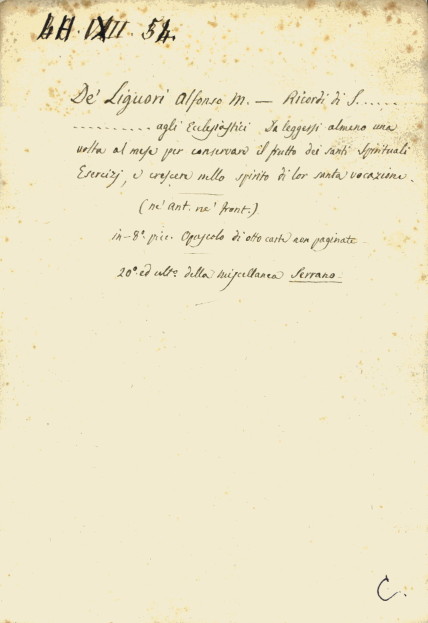 54.
De' Liguori Alfonso M. — Ricordi di S. . . . . . .
. . . . . . . . . . . . agli Ecclesiastici Da leggersi almeno una
volta al mese per conservare il frutto dei santi Spirituali
Esercizj, e crescere nello spirito di lor santa vocazione.
(nè ant. nè front.)
in-8°. picc. Opuscolo di otto carte non paginate
20°. ed ult°. della miscellanea Serrano.
C.